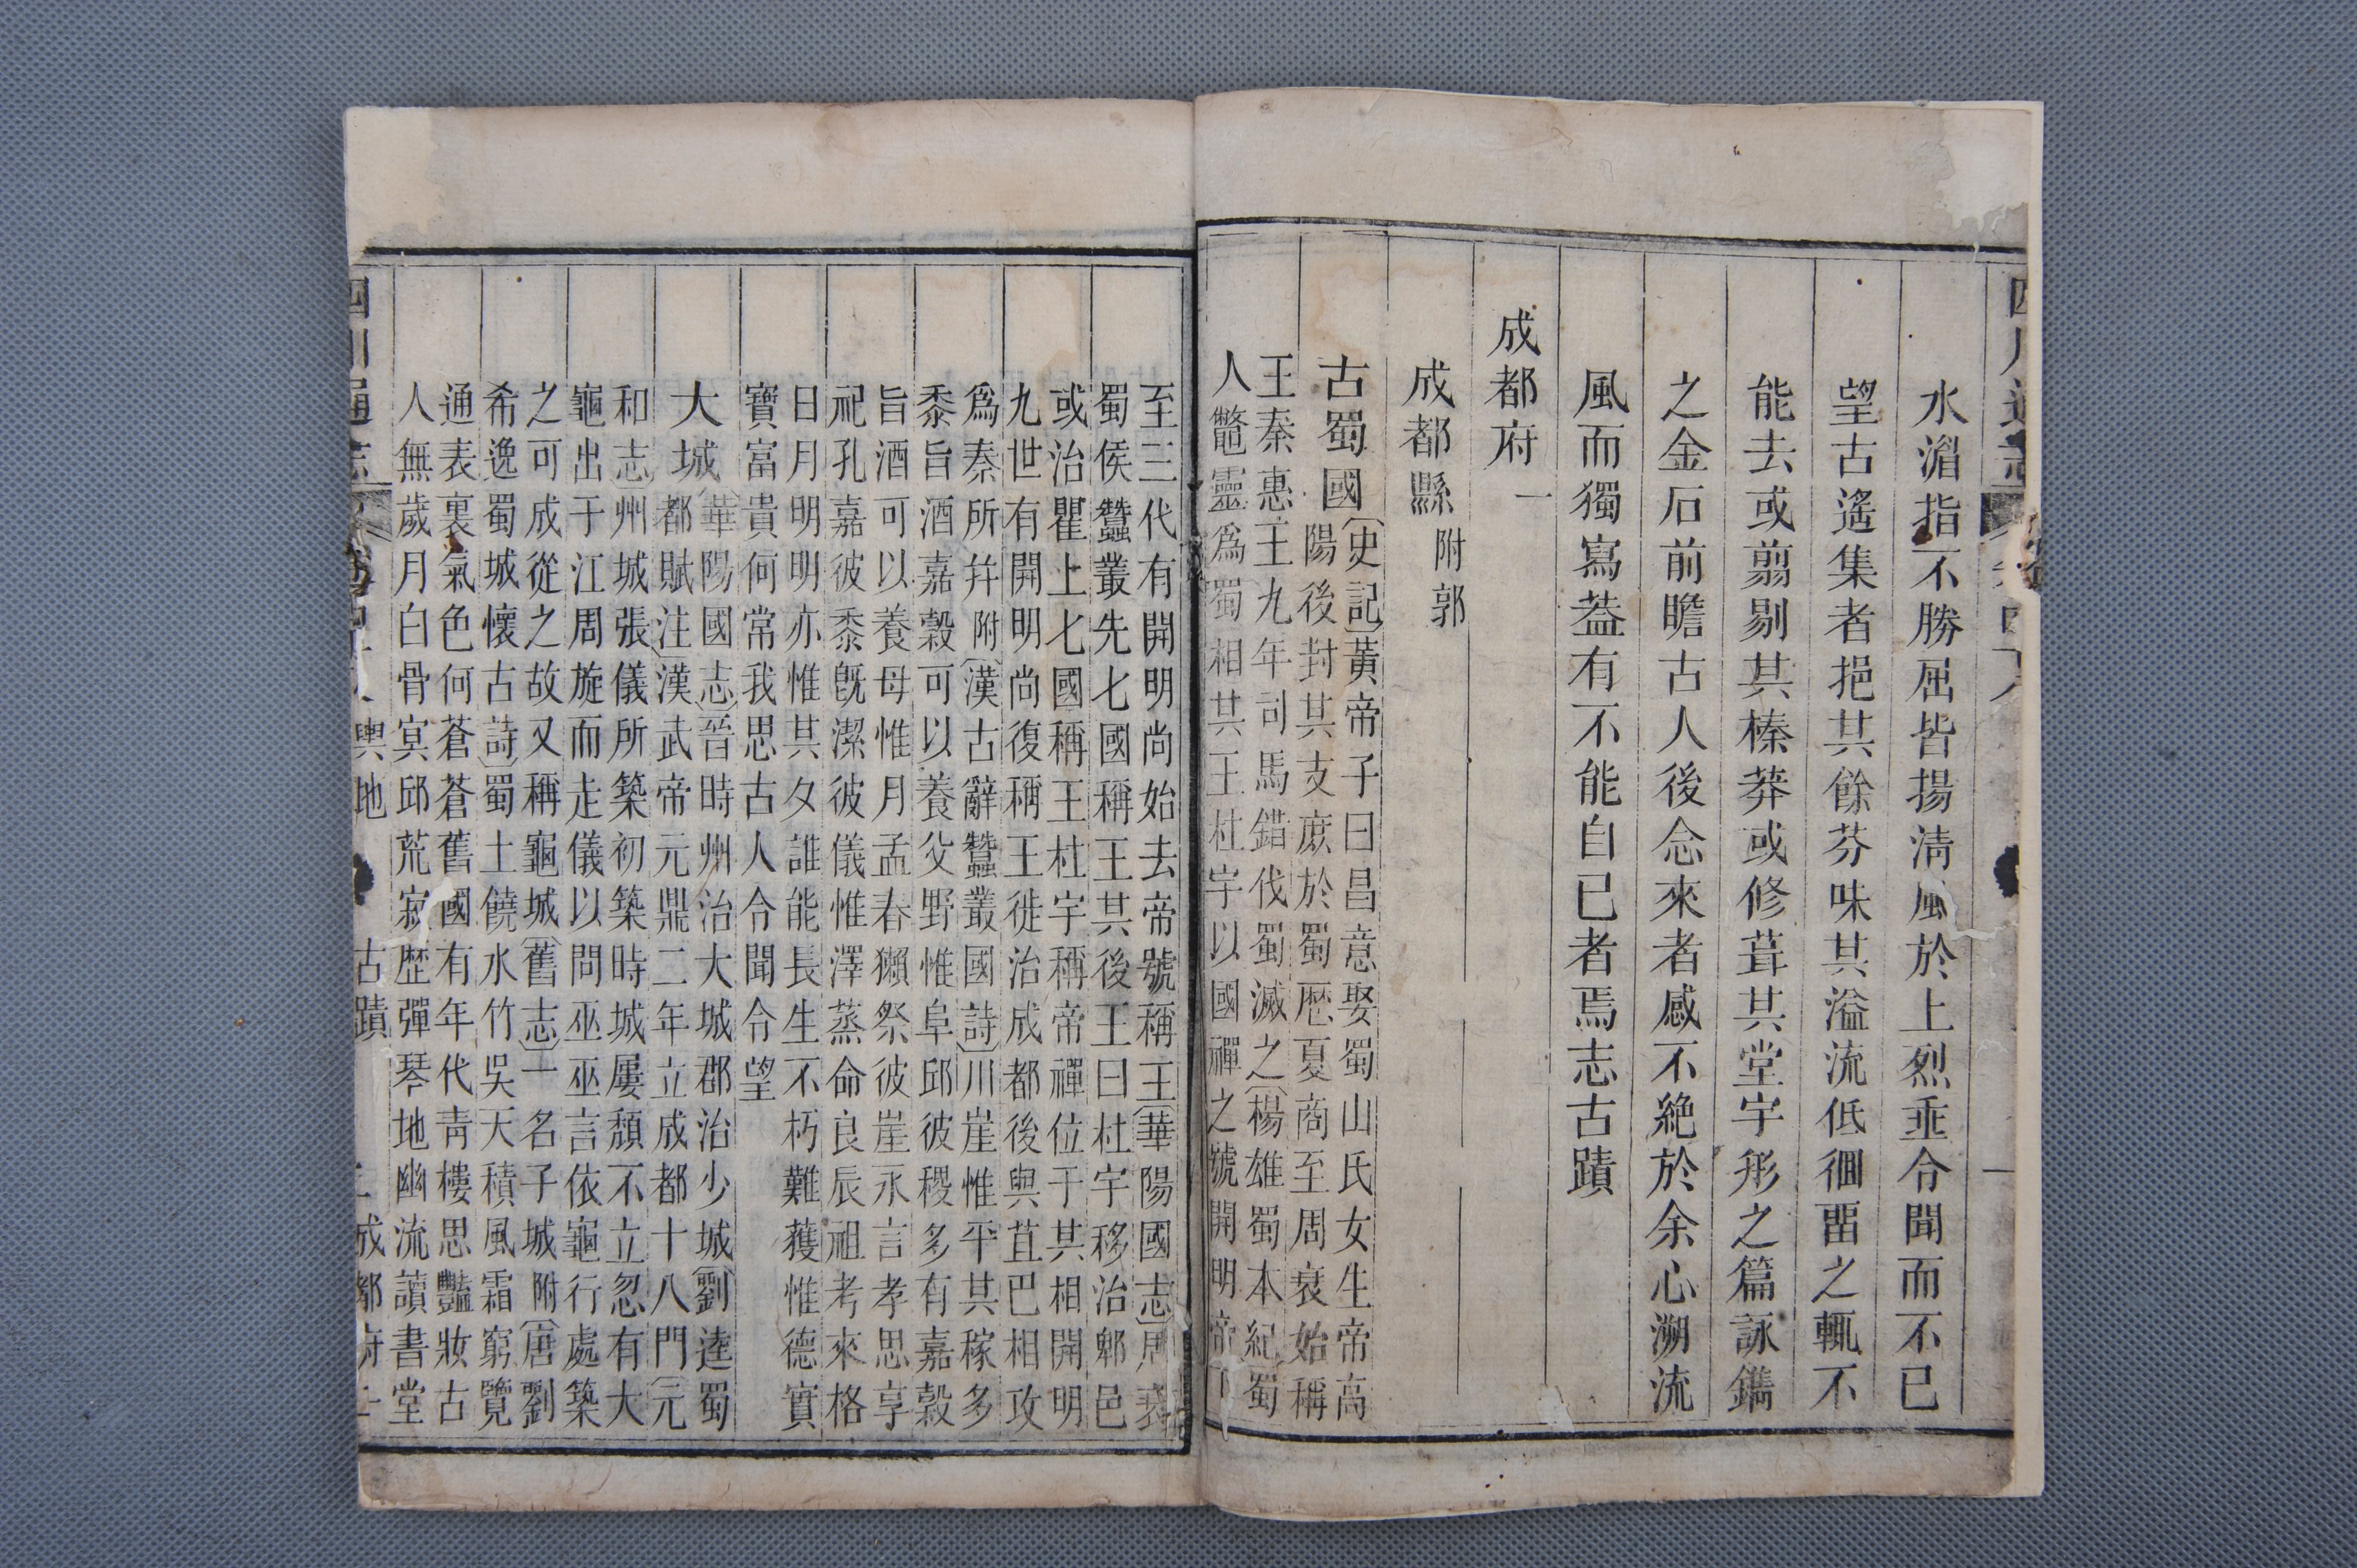 水湄指不勝屈皆揚清風於上烈垂令聞而不已
望古遙集者挹其餘芬味其溢流低徊畱之輒不
能去或翦剔其榛莽或修葺其堂宇形之篇詠鐫
之金石前瞻古人後念來者感不絶於余心溯流
風而獨寫葢有不能自已者焉志古蹟
成都府一
成都縣附郭
古蜀國〔史記〕黃帝子曰昌意娶蜀山氏女生帝高
陽後封其支庶於蜀歴夏商至周衰始稱
王秦惠王九年司馬錯伐蜀滅之〔楊雄蜀本紀〕蜀
人鼈靈爲蜀相其王杜宇以國禪之號開明帝下
至三代有開明尚始去帝號稱王〔華陽國志〕周衰
蜀侯蠶叢先七國稱王其後王曰杜宇移治郫邑
或治瞿上七國稱王杜宇稱帝禪位于其相開明
九世有開明尚復稱王徙治成都後與苴巴相攻
爲秦所幷附〔漢古辭蠶叢國詩〕川崖惟平其稼多
黍旨酒嘉穀可以養父野惟阜邱彼稷多有嘉穀
旨酒可以養母惟月孟春獺祭彼崖永言孝思享
祀孔嘉彼黍旣潔彼儀惟澤蒸命良辰祖考來格
日月明明亦惟其夕誰能長生不朽難獲惟德實
寶富貴何常我思古人令聞令望
大城〔華陽國志〕晉時州治大城郡治少城〔劉逵蜀
都賦注〕漢武帝元鼎二年立成都十八門〔元
和志〕州城張儀所築初築時城屢頹不立忽有大
龜出于江周旋而走儀以問巫巫言依龜行處築
之可成從之故又稱龜城〔舊志〕一名子城附〔唐劉
希逸蜀城懷古詩〕蜀土饒水竹吳天積風霜窮覽
通表裏氣色何蒼蒼舊國有年代靑樓思豔妝古
人無歲月白骨冥邱荒寂歷彈琴地幽流讀書堂
輿地
古蹟
成都府